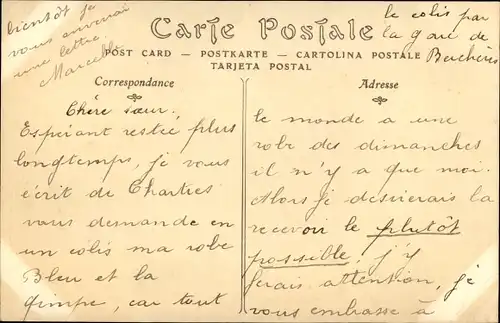 Carte Postale
POST CARD – POSTKARTE – CARTOLINA POSTALE
TARJETA POSTAL
Correspondance
Adresse
Chère sœur.
Espérant restée plus
longtemps, je vous
écrit de Chartres
vous demande en
un colis ma robe
Bleu et la
gimpe, car tout
le monde a une
robe des dimanches
il n'y a que moi.
Alors je desirerais la
recevoir le plutôt
possible, j'y
ferais attention, je
vous embrasse à
bientôt je
vous enverrai
une lettre.
Marcelle
le colis par
la gare de
Berchères